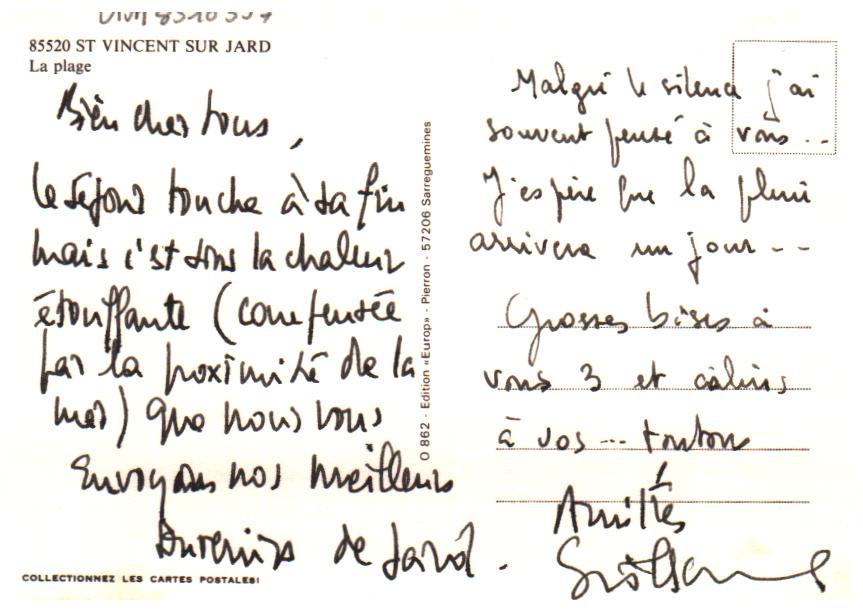 85520 ST VINCENT SUR JARD
La plage
Bien chers tous,
le séjour touche à sa fin
mais c'est sous la chaleur
étouffante (compensée
par la proximité de la
mer) que nous vous
envoyons nos meilleurs
souvenirs de Jard.
COLLECTIONNEZ LES CARTES POSTALES!
O 862 - Edition «Europ» - Pierron - 57206 Sarreguemines
Malgré le silence j'ai
souvent pensé à vous...
J'espère que la pluie
arrivera un jour --
Grosses bises à
vous 3 et câlins
à vos ... toutous
Amitiés